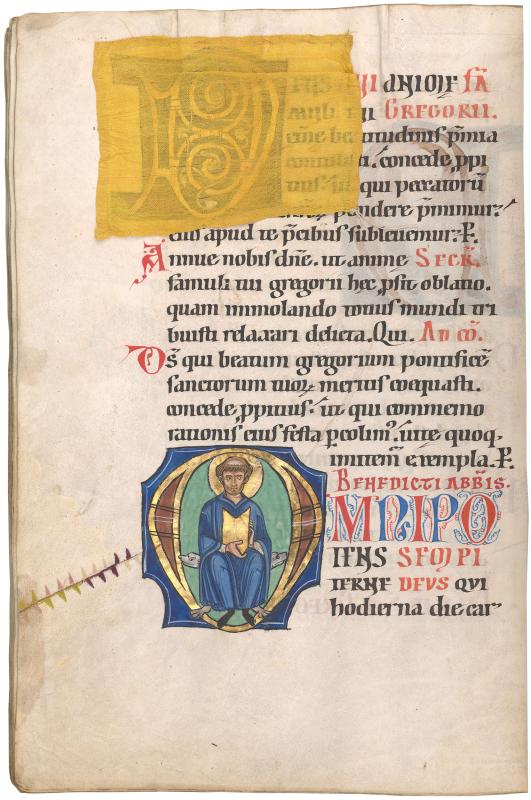 ANIOIE FA
GREGORII.
concede ppi
qui peccatorū
pondere p̄mimur:
eius apud te p̄cibus subleuemur: P.
Annue nobis dn̄e. ut anime SECR̄.
famuli tui gregorii hec psit oblatio.
quam immolando totius mundi tri
buisti relaxari delicta. Qui. AD CŌ.
Ds̄ qui beatum gregorium pontificē
sanctorum tuoꝝ meritis coequasti.
concede ppitius: ut qui commemo
rationis eius festa pcolimꝰ. uite quoq.
imitem̄ exempla. P.
BENEDICTI ABB̄IS.
OMNIPO
TENS SEMPI
TERNE DEUS QUI
hodierna die car